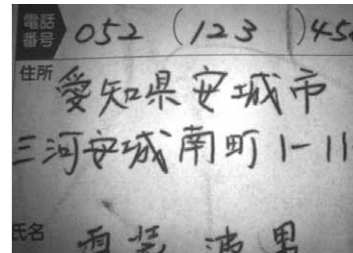 電話番号 052 (123) 45
住所 愛知県安城市
三河安城南町1-11
氏名